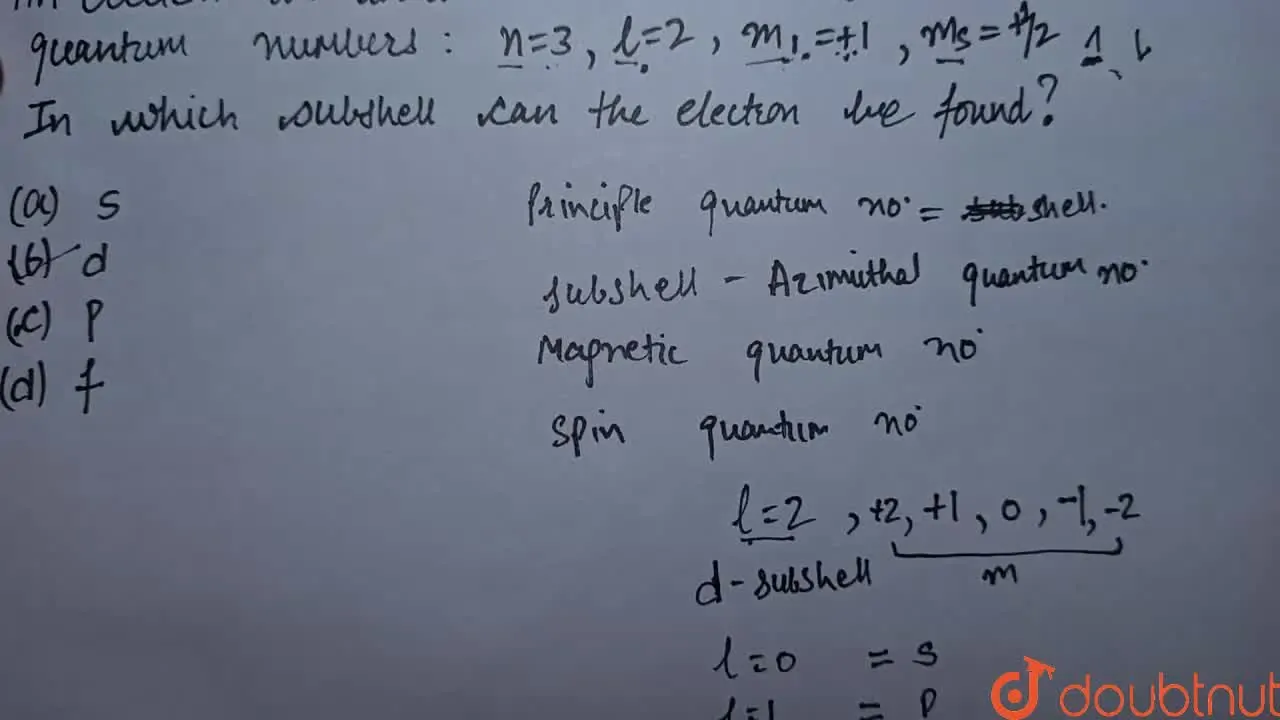 quantum numbers: n=3, l=2, m1.=+1, ms=+1/2 1
In which subshell can the election be found?
(a) s
(b) d
(c) p
(d) f
Principle quantum no. = shell.
subshell - Azimuthal quantum no.
Magnetic quantum no.
spin quantum no.
l=2, +2, +1, 0, -1, -2
d-subshell m
l=0 = s
l=1 = p
doubtnut